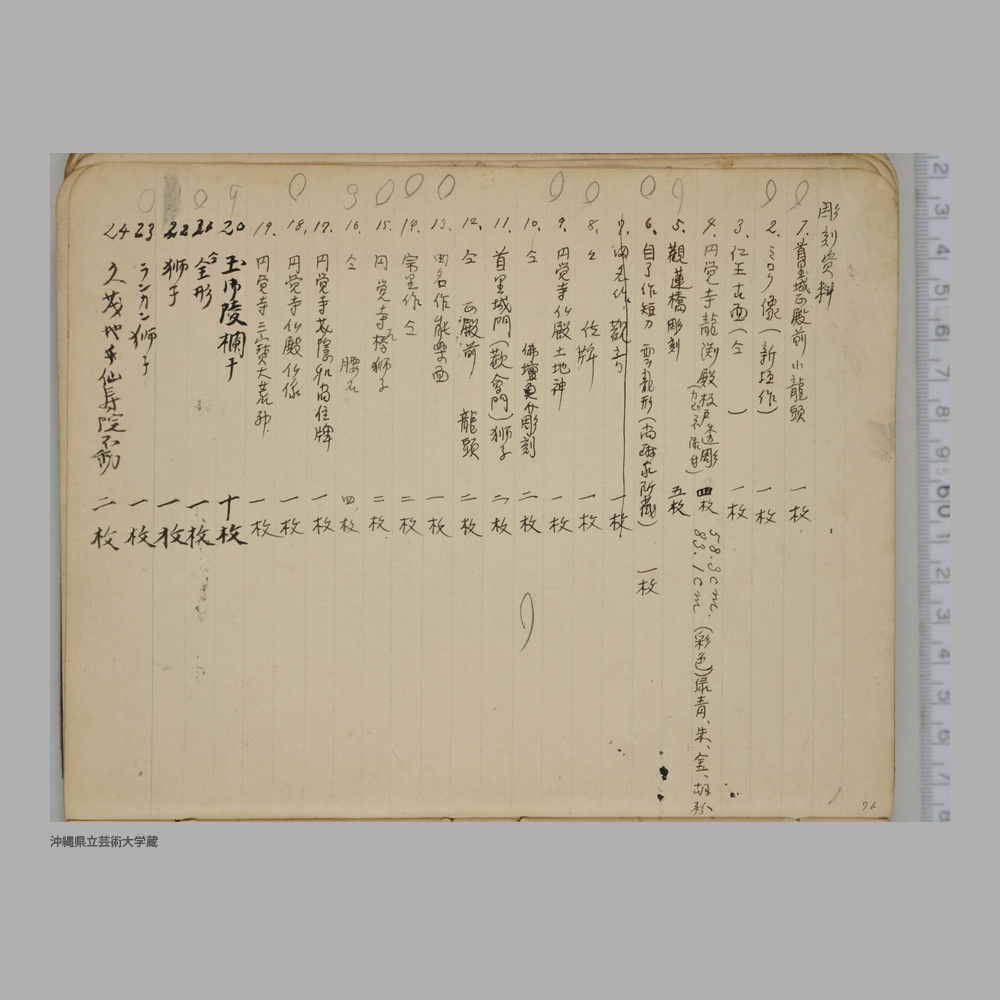 彫刻資料
1. 首里城正殿前小龍頭 一枚
2. ミロク像(新垣作) 一枚
3. 仁王古面(仝) 一枚
4. 円覚寺龍渕殿板戸透彫 四枚 58.3cm. 83.1cm (彩色)緑青、朱、金、胡粉
5. 觀蓮橋彫刻 五枚
6. 自了作短刀 雲龍形(尚 家所蔵) 一枚
一枚
8. 仝 位牌 一枚
9. 円覚寺仏殿土地神 一枚
10. 仝 佛壇 彫刻 二枚
11. 首里城門(歡會門)獅子 二枚
12. 仝 正殿前 龍頭 二枚
13. 田名作能楽面 一枚
14. 宗里作 仝 二枚
15. 円覚寺橋獅子 二枚
16. 仝 腰石 四枚
17. 円覚寺芥隠和尚位牌 一枚
18. 円覚寺仏殿仏像 一枚
19. 円覚寺三寳大荒神 一枚
20 玉御陵欄干 十枚
21 仝形 一枚
22 獅子 一枚
23 ランカン獅子 一枚
24 久茂地 仙寿院不動 二枚
76
2 3 4 5 6 7 8 9 60 1 2 3 4 5 6 7 8
沖縄県立芸術大学蔵